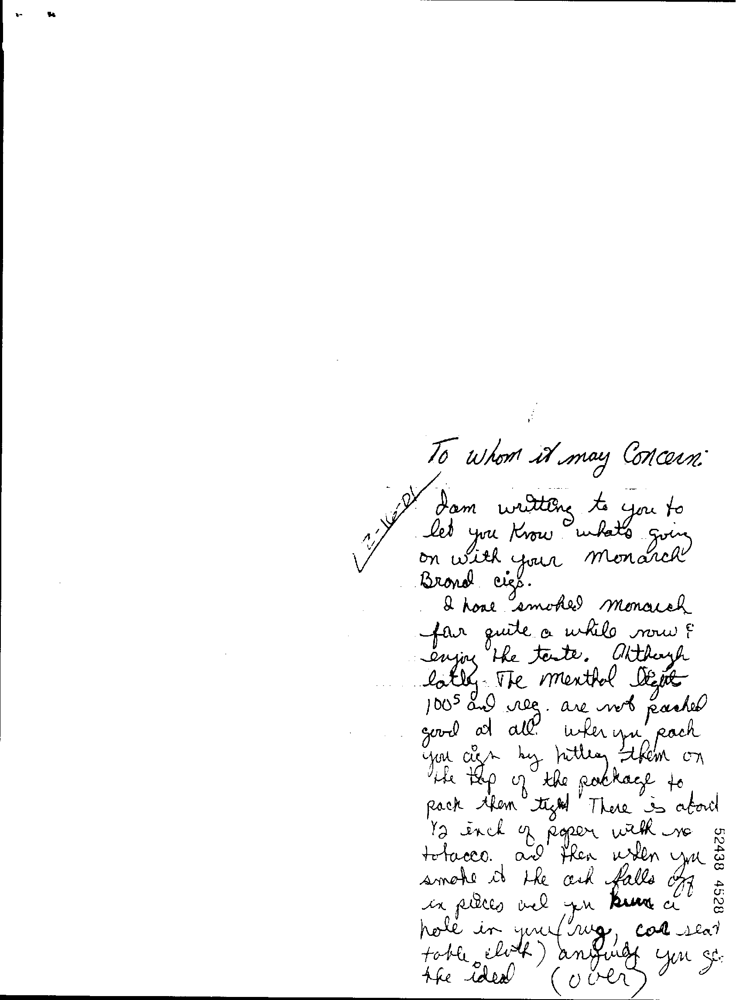 To whom it may Concern:
12-16-01
I am writting to you to
let you know whats going
on with your monarch
Brand cigs.
I have smoked monarch
for quite a while now &
enjoy the taste. Although
latly The menthol light
100s and reg. are not packed
good at all. when you pack
you cigs by hitting them on
the top of the package to
pack them tight There is about
1/2 inch of paper with no
tobacco. and then when you
smoke it the ash falls off
in pieces and you burn a
hole in your (rug, car seat
table cloth) you get
the idea (over)
52438 4528